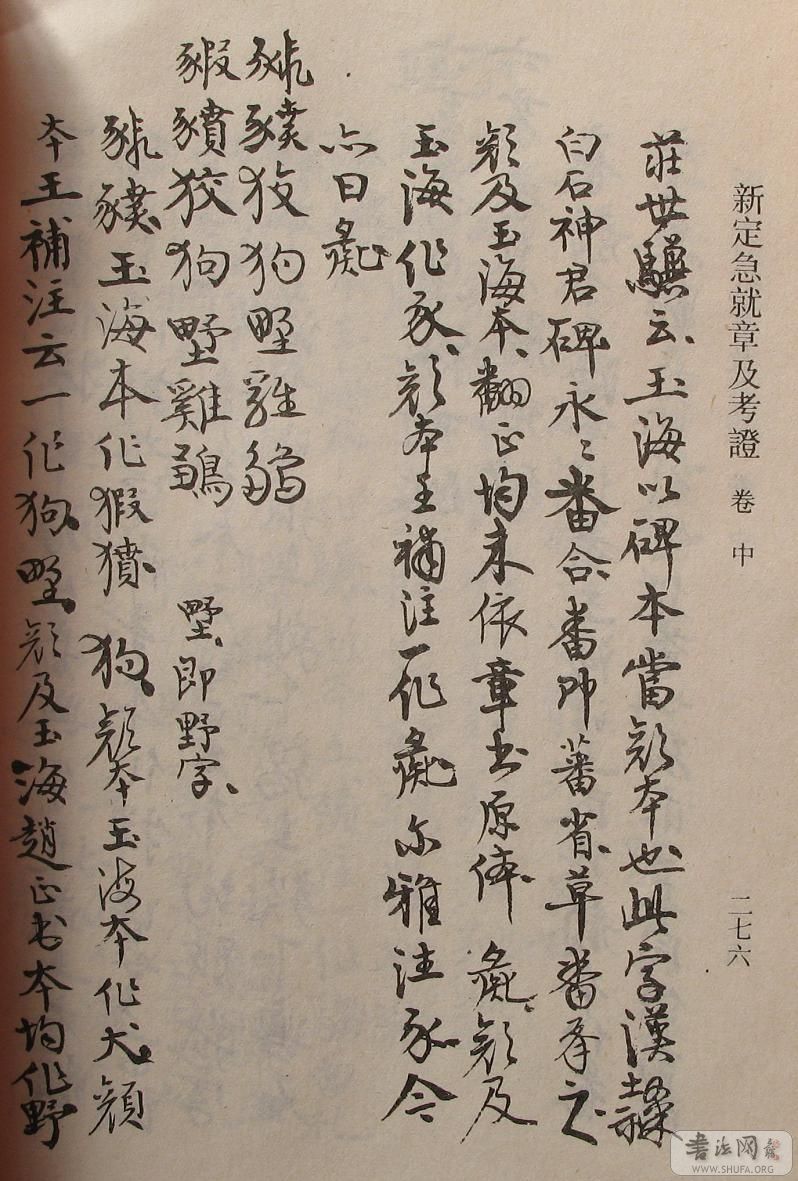 新定急就章及考證 卷中 二七六
莊世驥云、玉海以碑本當顏本也此字漢隸
白石神君碑永〻番合、番即蕃省、草番奪之
顏及玉海本、翻正均未依章書原体 彘、顏及
玉海作豕、顏本王補注一作彘尔雅注豕今
亦曰彘
狡狗野雞
豭豶狡狗野雞 野、即野字、
玉海本作猳獖 狗、顏本玉海本作犬、顏
本王補注云一作狗、野、顏及玉海趙正书本均作野
書法网
WWW.SHUFA.ORG